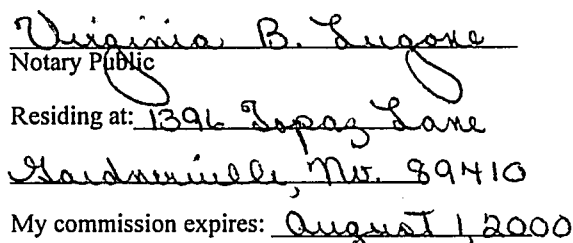 Virginia B. Lugone
Notary Public
Residing at: 1396 Topaz Lane
Gardnerville, Nv. 89410
My commission expires: August 1, 2000